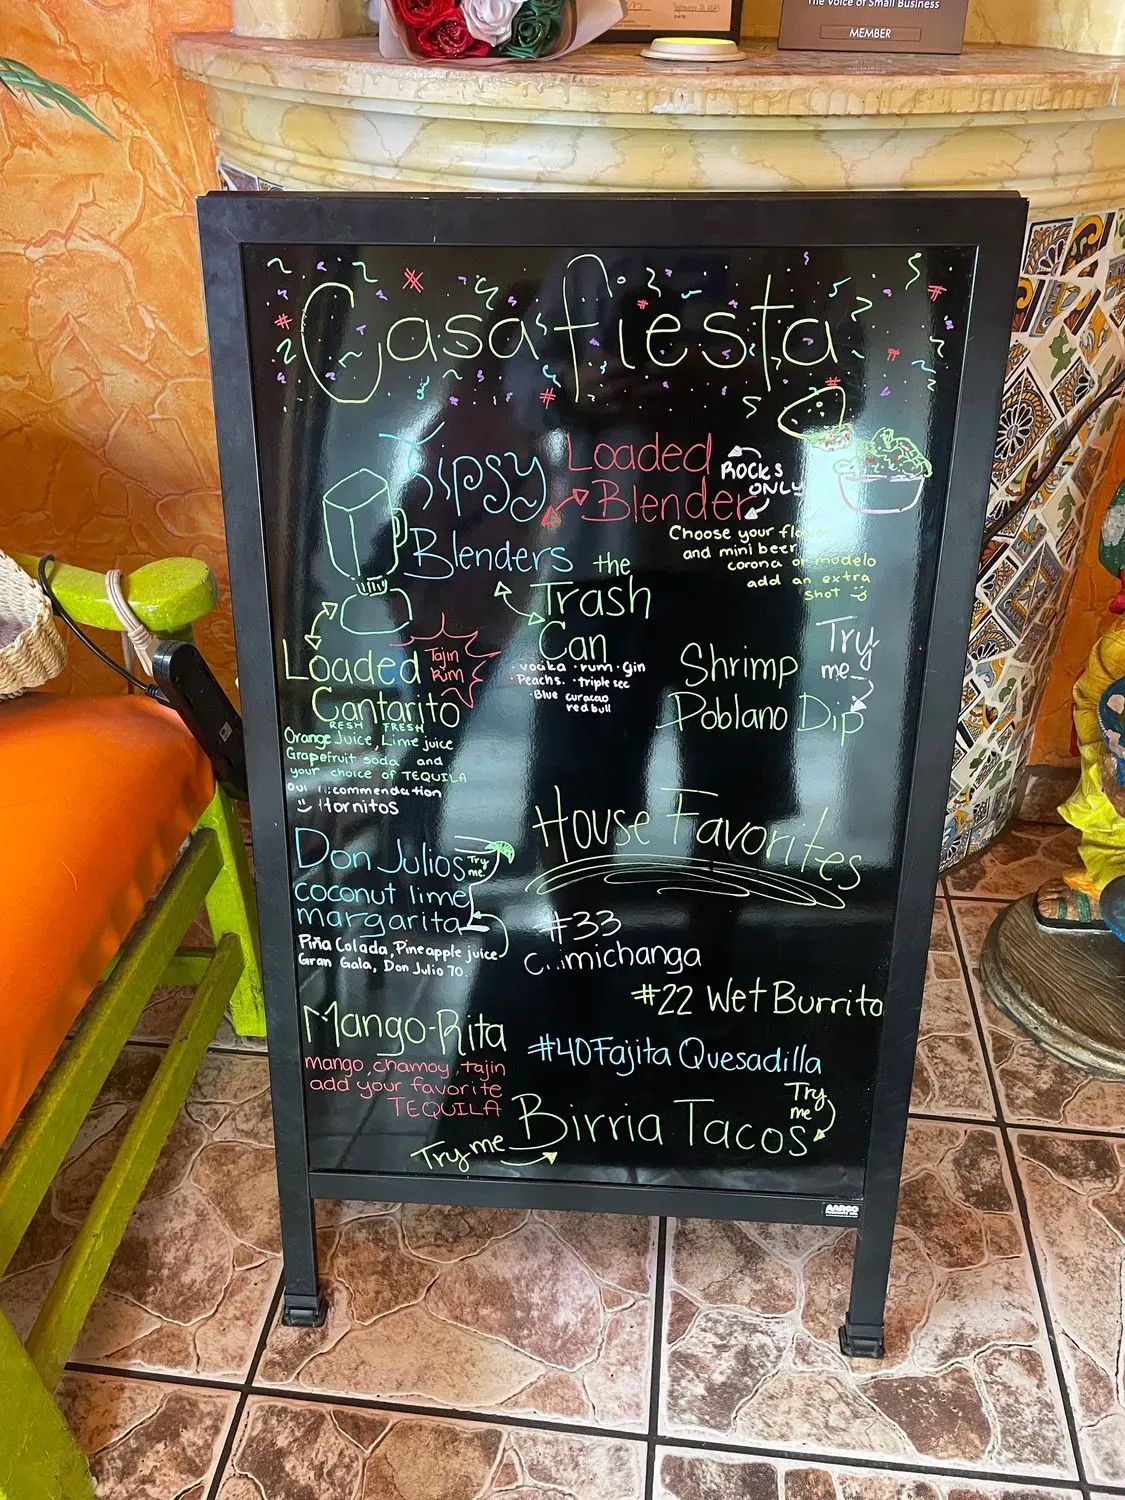 The Voice of Small Business
MEMBER
DATE
Casa fiesta
Tipsy
Blenders
Loaded
Blender
ROCKS
ONLY
Choose your
and mini beer
corona or modelo
add an extra
shot
the
Trash
Can
vodka · rum · gin
· Peachs. · triple sec
· Blue curacao
redbull
Loaded
Cantarito
Tajin
Rim
FRESH
Orange Juice, Lime juice
Grapefruit soda and
your choice of TEQUILA
Hornitos
Shrimp
Poblano Dip
Try
me
Don Julios
coconut lime
margarita
Try
me!
Piña Colada, Pineapple juice
Gran Gala, Don Julio 70.
Mango-Rita
mango, chamoy, tajin
add your favorite
TEQUILA
House Favorites
#33
#22 Wet Burrito
#40 Fajita Quesadilla
Birria Tacos
Try
me
Try me